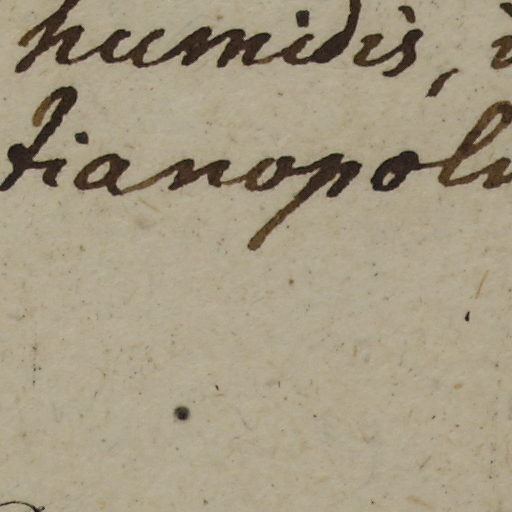 humidis, i
tianopoli